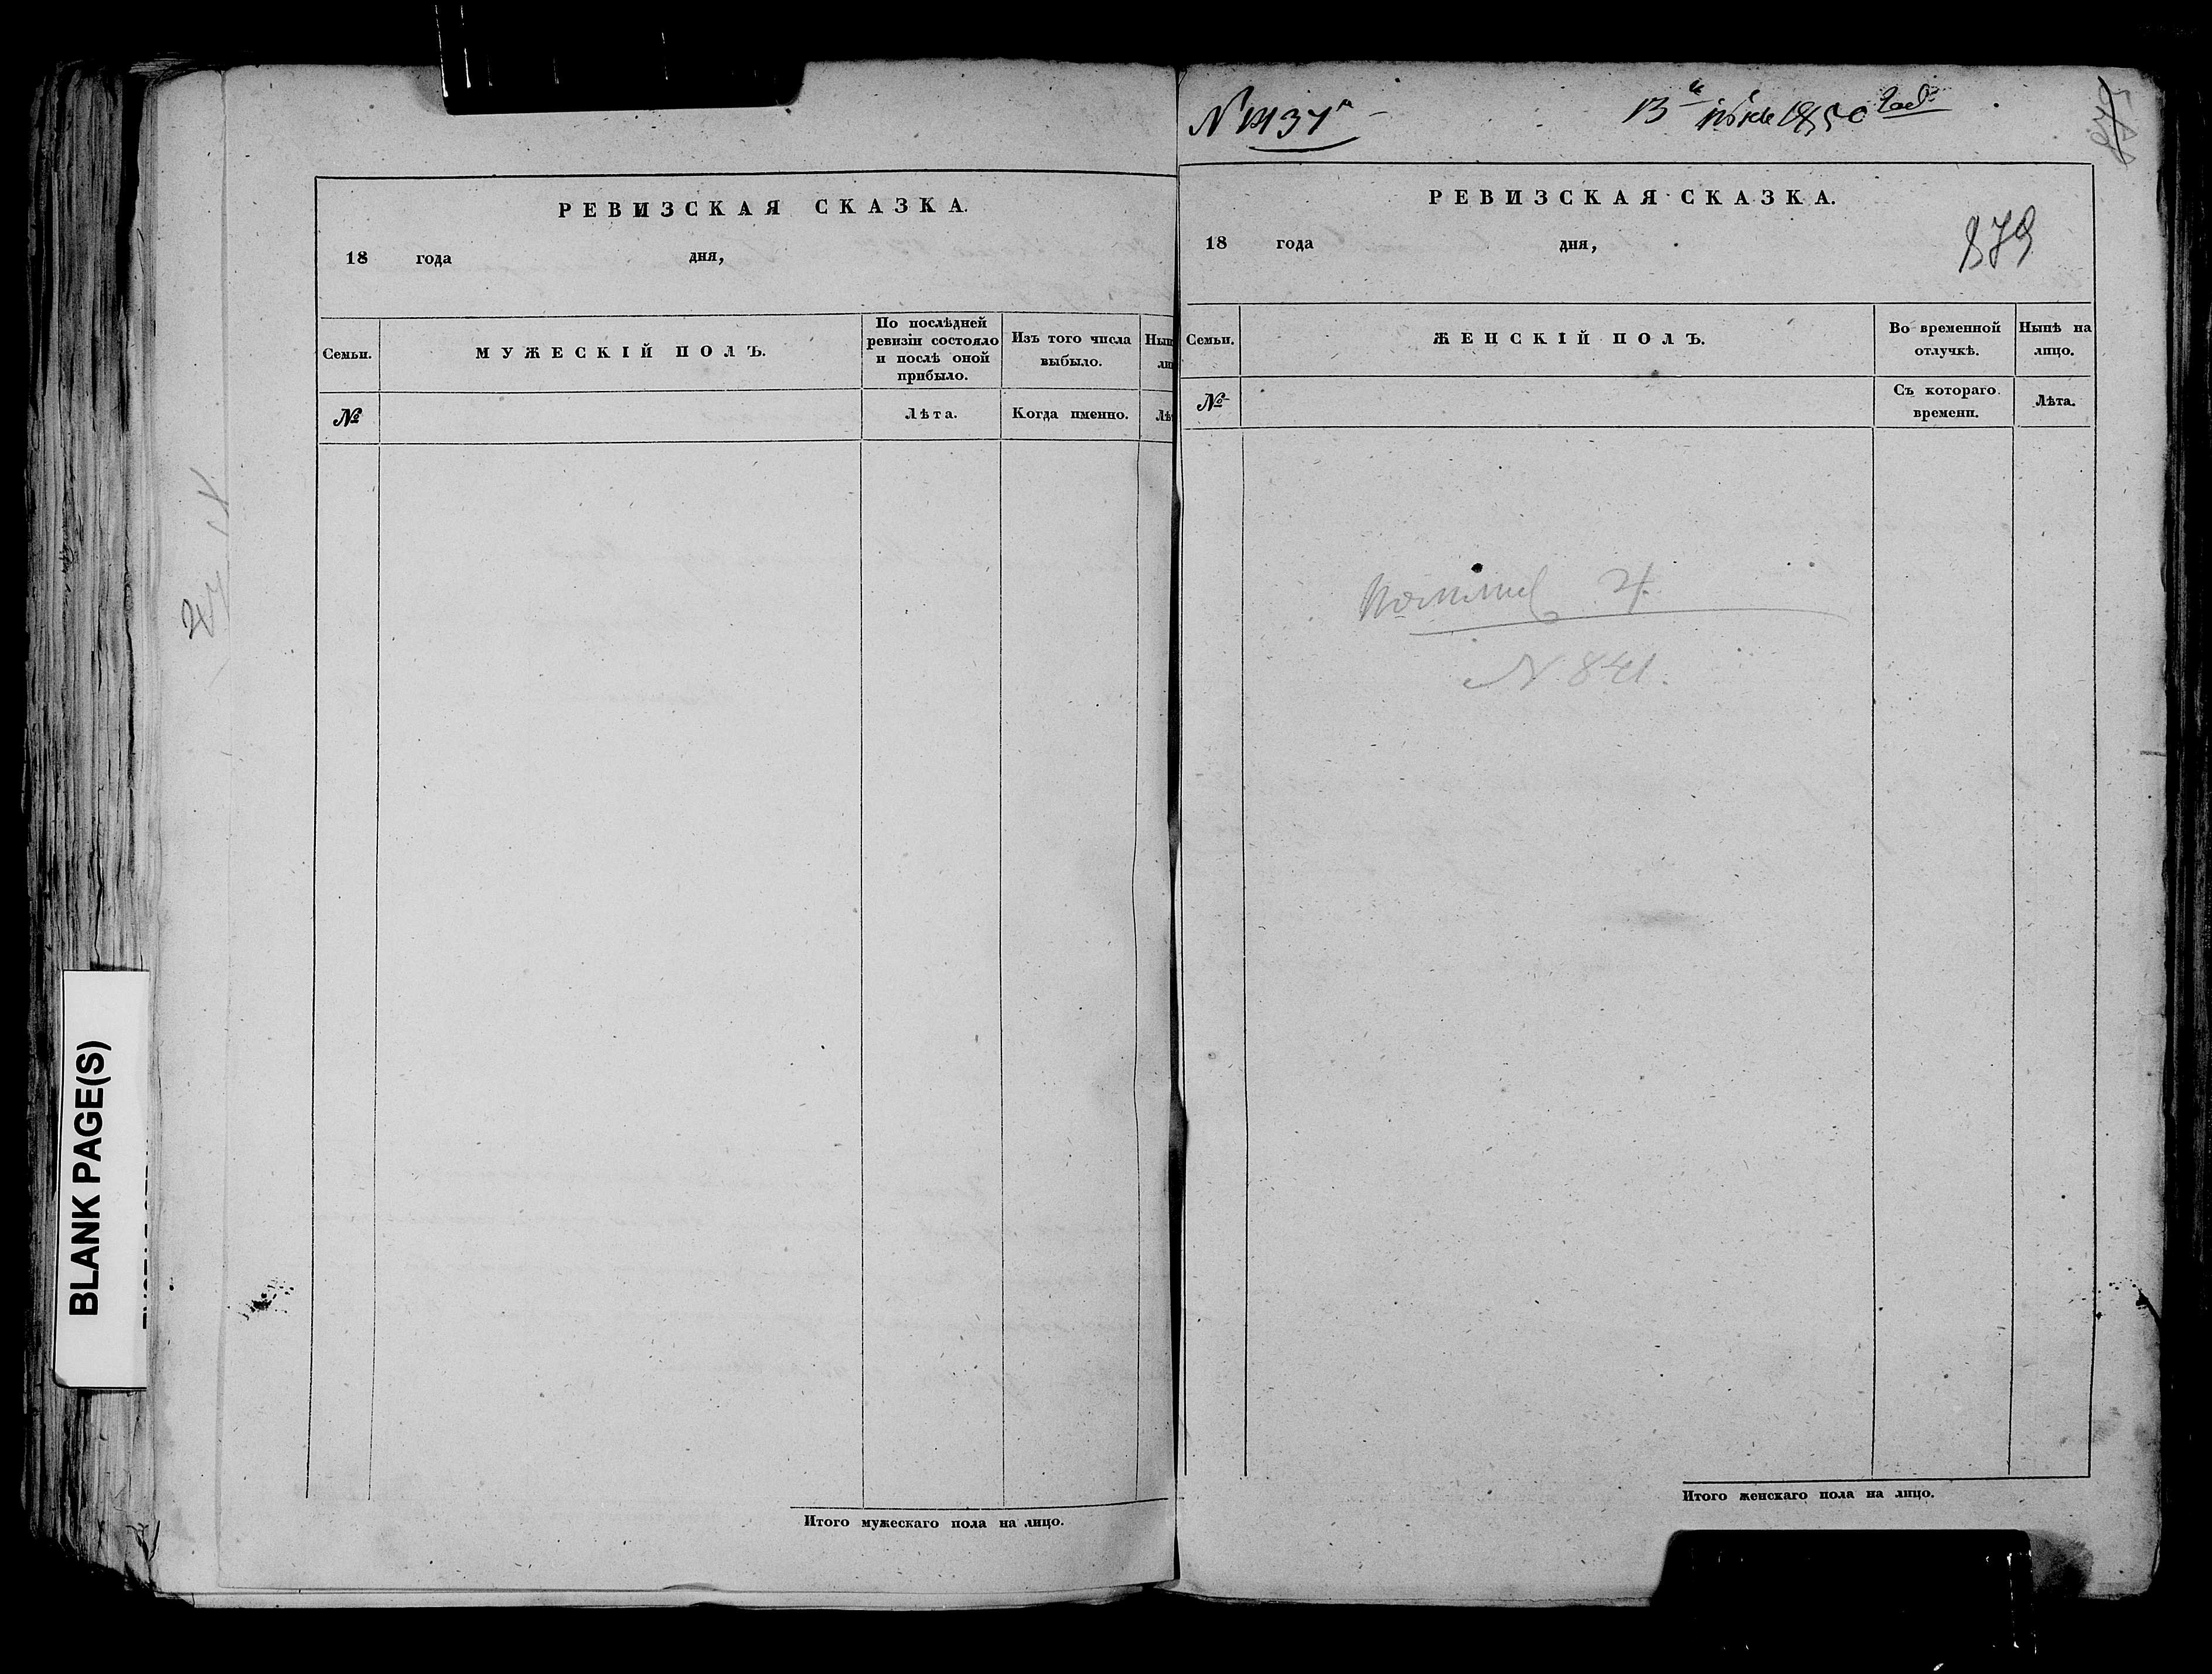 РЕВИЗСКАЯ СКАЗКА.
18 года дня,
Семьи.
МУЖЕСКІЙ ПОЛЪ.
По послѣдней
ревизіи состояло
и послѣ оной
прибыло.
Изъ того числа
выбыло.
№
Лѣта.
Когда именно.
Итого мужескаго пола на лицо.
13 1850
РЕВИЗСКАЯ СКАЗКА.
18 года дня,
879
Семьи.
ЖЕНСКІЙ ПОЛЪ.
Во временной
отлучкѣ.
Нынѣ на
лицо.
№
Съ котораго
времени.
Лѣта.
N 841.
Итого женскаго пола на лицо.
BLANK PAGE(S)